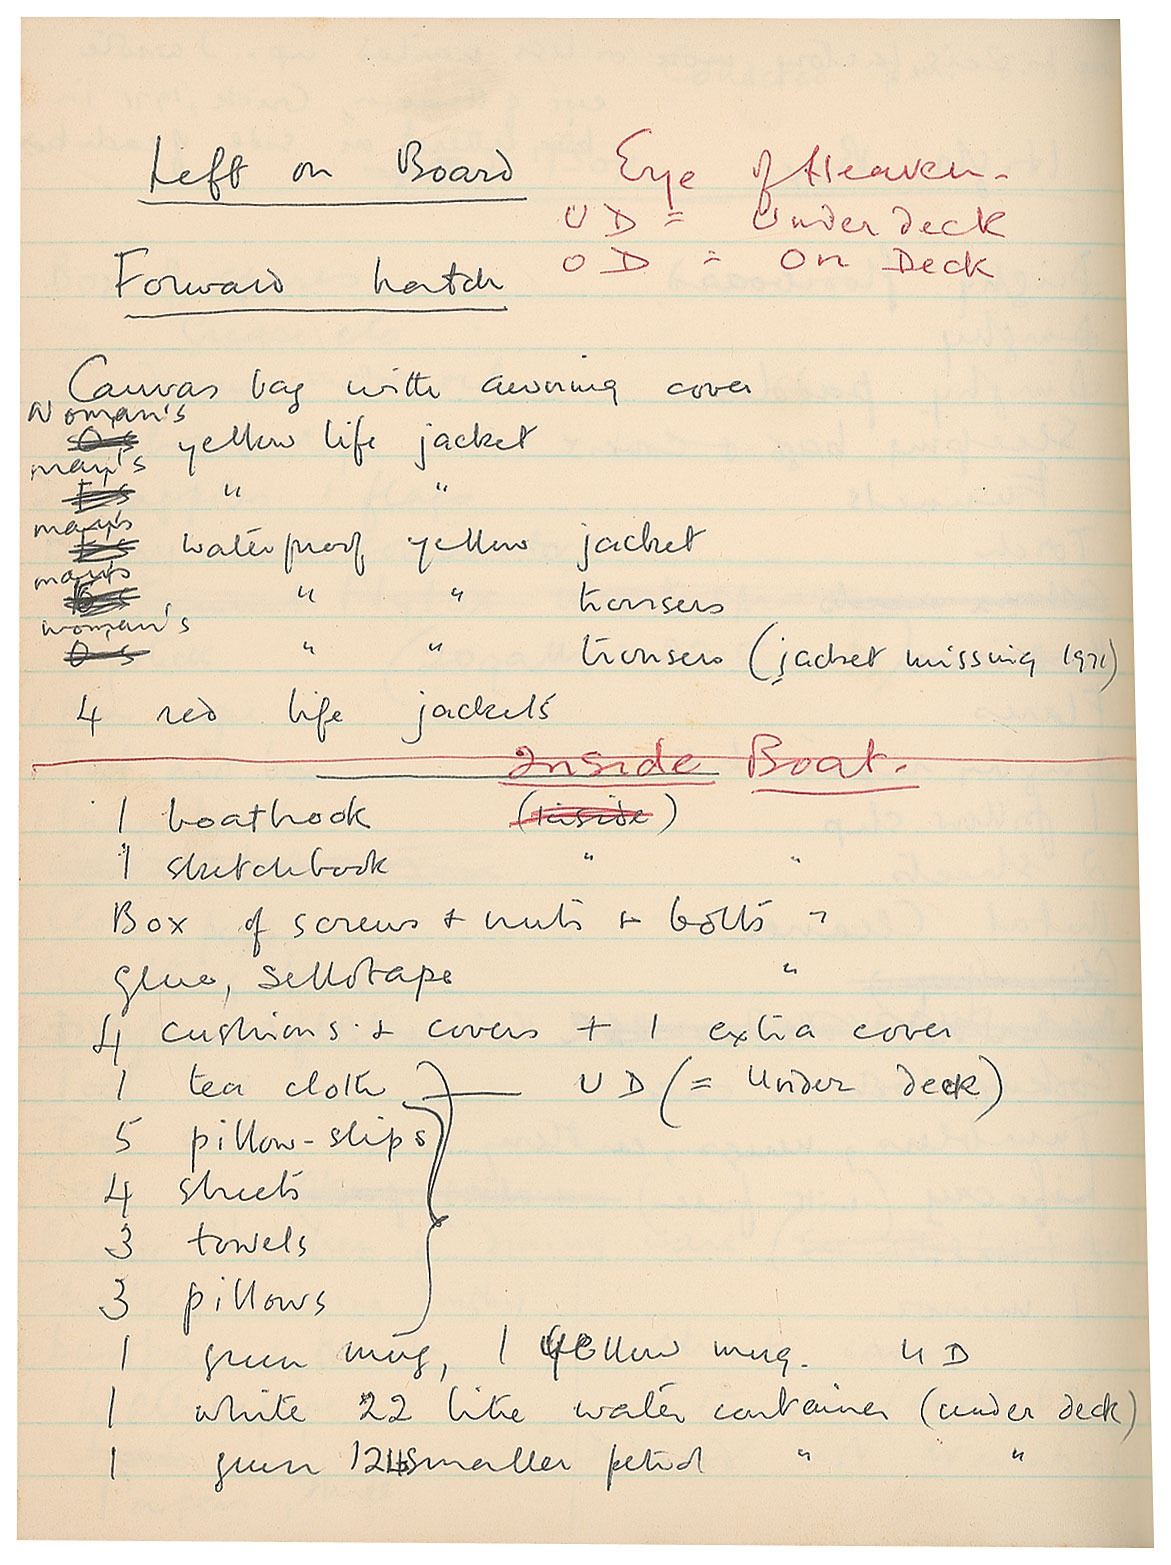 Left on Board Eye of Heaven.
UD = Underdeck
OD = On Deck
Forward hatch
Canvas bag with awning cover
woman's O's yellow life jacket
man's " "
man's waterproof yellow jacket
man's " " trousers
woman's O's " " trousers (jacket missing 1971)
4 red life jackets
Inside Boat.
1 boathook (inside)
1 sketchbook " "
Box of screws + nuts + bolts "
glue, sellotape "
4 cushions + covers + 1 extra cover
1 tea cloth UD (= Under deck)
5 pillow-slips
4 sheets
3 towels
3 pillows
1 green mug, 1 yellow mug. UD
1 white 22 litre water container (under deck)
1 green smaller petrol " "